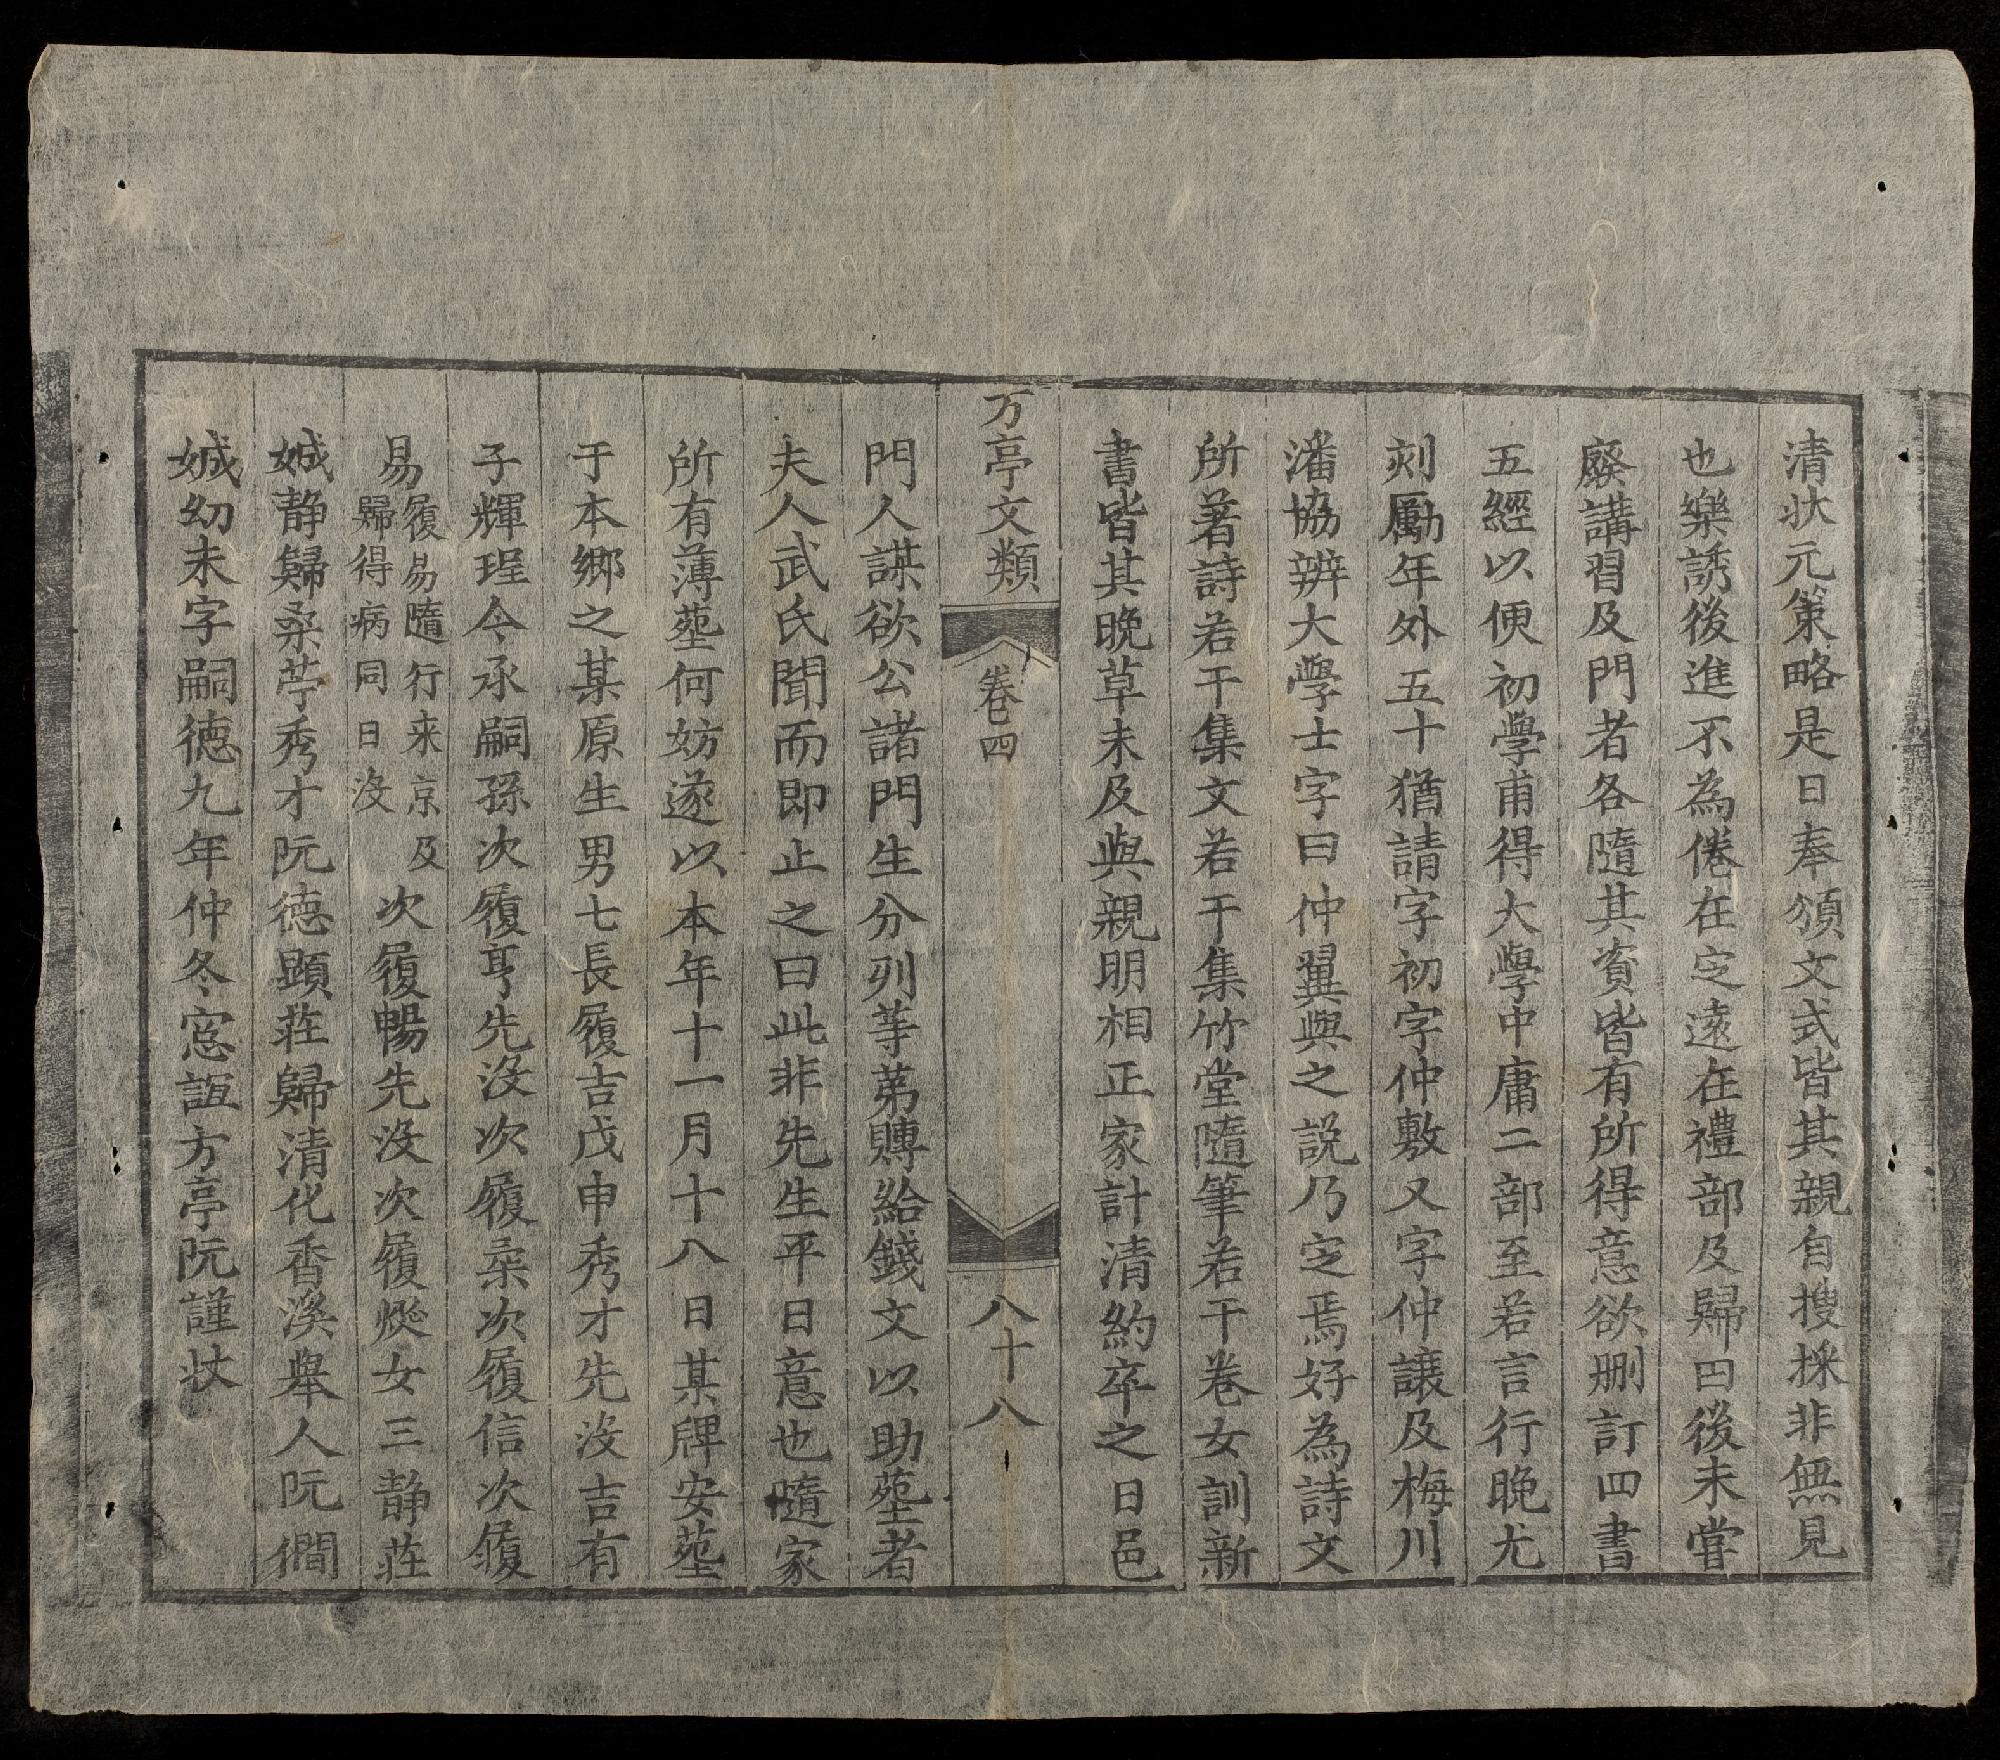 清状元策略是日奉頒文式皆其親自搜採非無見
也樂誘後進不為倦在定遠在禮部及歸田後未嘗
廢講習及門者各隨其資皆有所得意欲刪訂四書
五經以便初學甫得大學中庸二部至若言行晚尤
刻勵年外五十猶請字初字仲敷又字仲讓及梅川
潘協辨大學士字曰仲翼與之説乃定焉好為詩文
所著詩若干集文若干集竹堂隨筆若干卷女訓新
書皆其晚草未及與親明相正家計清約卒之日邑
方亭文類
卷四
八十八
門人謀欲公諸門生分列等苐賻給錢文以助塟者
夫人武氏聞而即止之曰此非先生平日意也隨家
所有薄塟何妨遂以本年十一月十八日某牌安塟
于本鄉之某原生男七長履吉戊申秀才先没吉有
子輝珵今承嗣孫次履亨先没次履桑次履信次履
易履易隨行来京及歸得病同日没次履暢先没次履烻女三静荘
娍静歸桑苧秀才阮德顕荘歸清化香溪舉人阮僩
娍幼未字嗣德九年仲冬窓誼方亭阮謹状